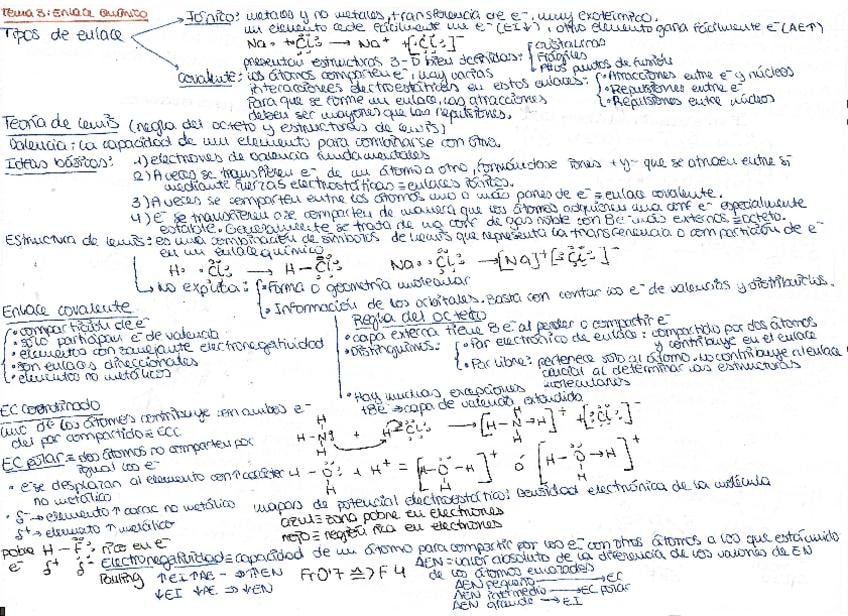 Tema 3: Enlace Químico
Tipos de enlace
Iónico: metales y no metales, transferencia de e⁻, muy exotérmico.
un elemento cede fácilmente un e⁻ (EI↓), otro elemento gana fácilmente e⁻ (AE↑)
Na· + ·Cl: → Na⁺ + [:Cl:]⁻
presentan estructuras 3-D bien definidas: cristalinas
Frágiles
Altos puntos de fusión
Covalente: los átomos comparten e⁻, hay varias
interacciones electrostáticas en estos enlaces: · Atracciones entre e⁻ y núcleos
Para que se forme un enlace, las atracciones · Repulsiones entre e⁻
deben ser mayores que las repulsiones. · Repulsiones entre núcleos
Teoría de Lewis (regla del octeto y estructuras de Lewis)
Valencia: la capacidad de un elemento para combinarse con otro.
Ideas básicas: 1) electrones de valencia fundamentales
2) A veces se transfieren e⁻ de un átomo a otro, formándose iones + y - que se atraen entre sí
mediante fuerzas electrostáticas ≡ enlaces iónicos.
3) A veces se comparten entre los átomos uno o más pares de e⁻ ≡ enlace covalente.
4) e⁻ se transfieren o se comparten de manera que los átomos adquieren una conf e⁻ especialmente
estable. Generalmente se trata de una conf de gas noble con 8e⁻ más externos ≡ octeto.
Estructura de Lewis: es una combinación de símbolos de Lewis que representa la transferencia o compartición de e⁻
en un enlace químico
H· ·Cl: → H–Cl: Na· ·Cl: → [Na]⁺[:Cl:]⁻
No explica: · Forma o geometría molecular
· Información de los orbitales. Basta con contar los e⁻ de valencias y distribuirlos.
Enlace covalente
· compartición de e⁻
· sólo participan e⁻ de valencia
· elementos con semejante electronegatividad
· son enlaces direccionales
· elementos no metálicos
Regla del octeto
· capa externa tiene 8e⁻ al perder o compartir e⁻
· Distinguimos: · Par electrónico de enlace: compartido por dos átomos
y contribuye en el enlace
· Par libre: pertenece sólo al átomo. No contribuye al enlace
crucial al determinar las estructuras
moleculares
· Hay muchas excepciones
+8e⁻ → capa de valencia extendida
EC coordinado
uno de los átomos contribuye con ambos e⁻
del par compartido ≡ ECC
H–N: + H–Cl: → [H–N→H]⁺ + [:Cl:]⁻
EC polar ≡ dos átomos no comparten por
igual los e⁻
H–O: + H⁺ = [H–O–H]⁺ ó [H–O→H]⁺
· e⁻ se desplazan al elemento con ↑ carácter
no metálico
· δ⁻ → elemento ↑ carac no metálico
δ⁺ → elemento ↑ metálico
mapas de potencial electroestático: Densidad electrónica de la molécula
azul ≡ zona pobre en electrones
rojo ≡ región rica en electrones
pobre H – F: rico en e⁻
e⁻ δ⁺ δ⁻
Electronegatividad ≡ capacidad de un átomo para compartir por los e⁻ con otros átomos a los que está unido
Pauling ↑EI ↑AE → ↑EN
↓EI ↓AE ⇒ ↓EN
Fr 0'7 F 4
ΔEN = valor absoluto de la diferencia de los valores de EN
de los átomos enlazados
ΔEN pequeño → EC
ΔEN intermedio → EC polar
ΔEN grande → EI